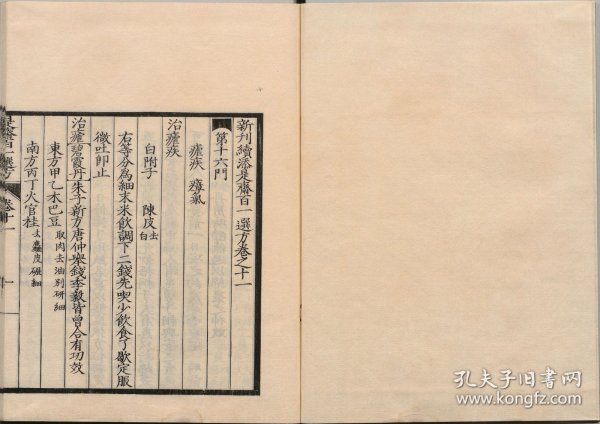 新刊續添是齋百一選方卷之十一
第十六門
瘧疾 瘴氣
治瘧疾
白附子 陳皮去白
右等分為細末米飲調下二錢先喫少飲食了歇定服
微吐即止
治瘧碧霞丹朱子新方唐仲舉錢季毅皆曾合有功效
東方甲乙木巴豆取肉去油別研細
南方丙丁火官桂去麤皮碾細
是齋百一選方 卷十一 一
孔夫子旧书网
www.kongfz.com